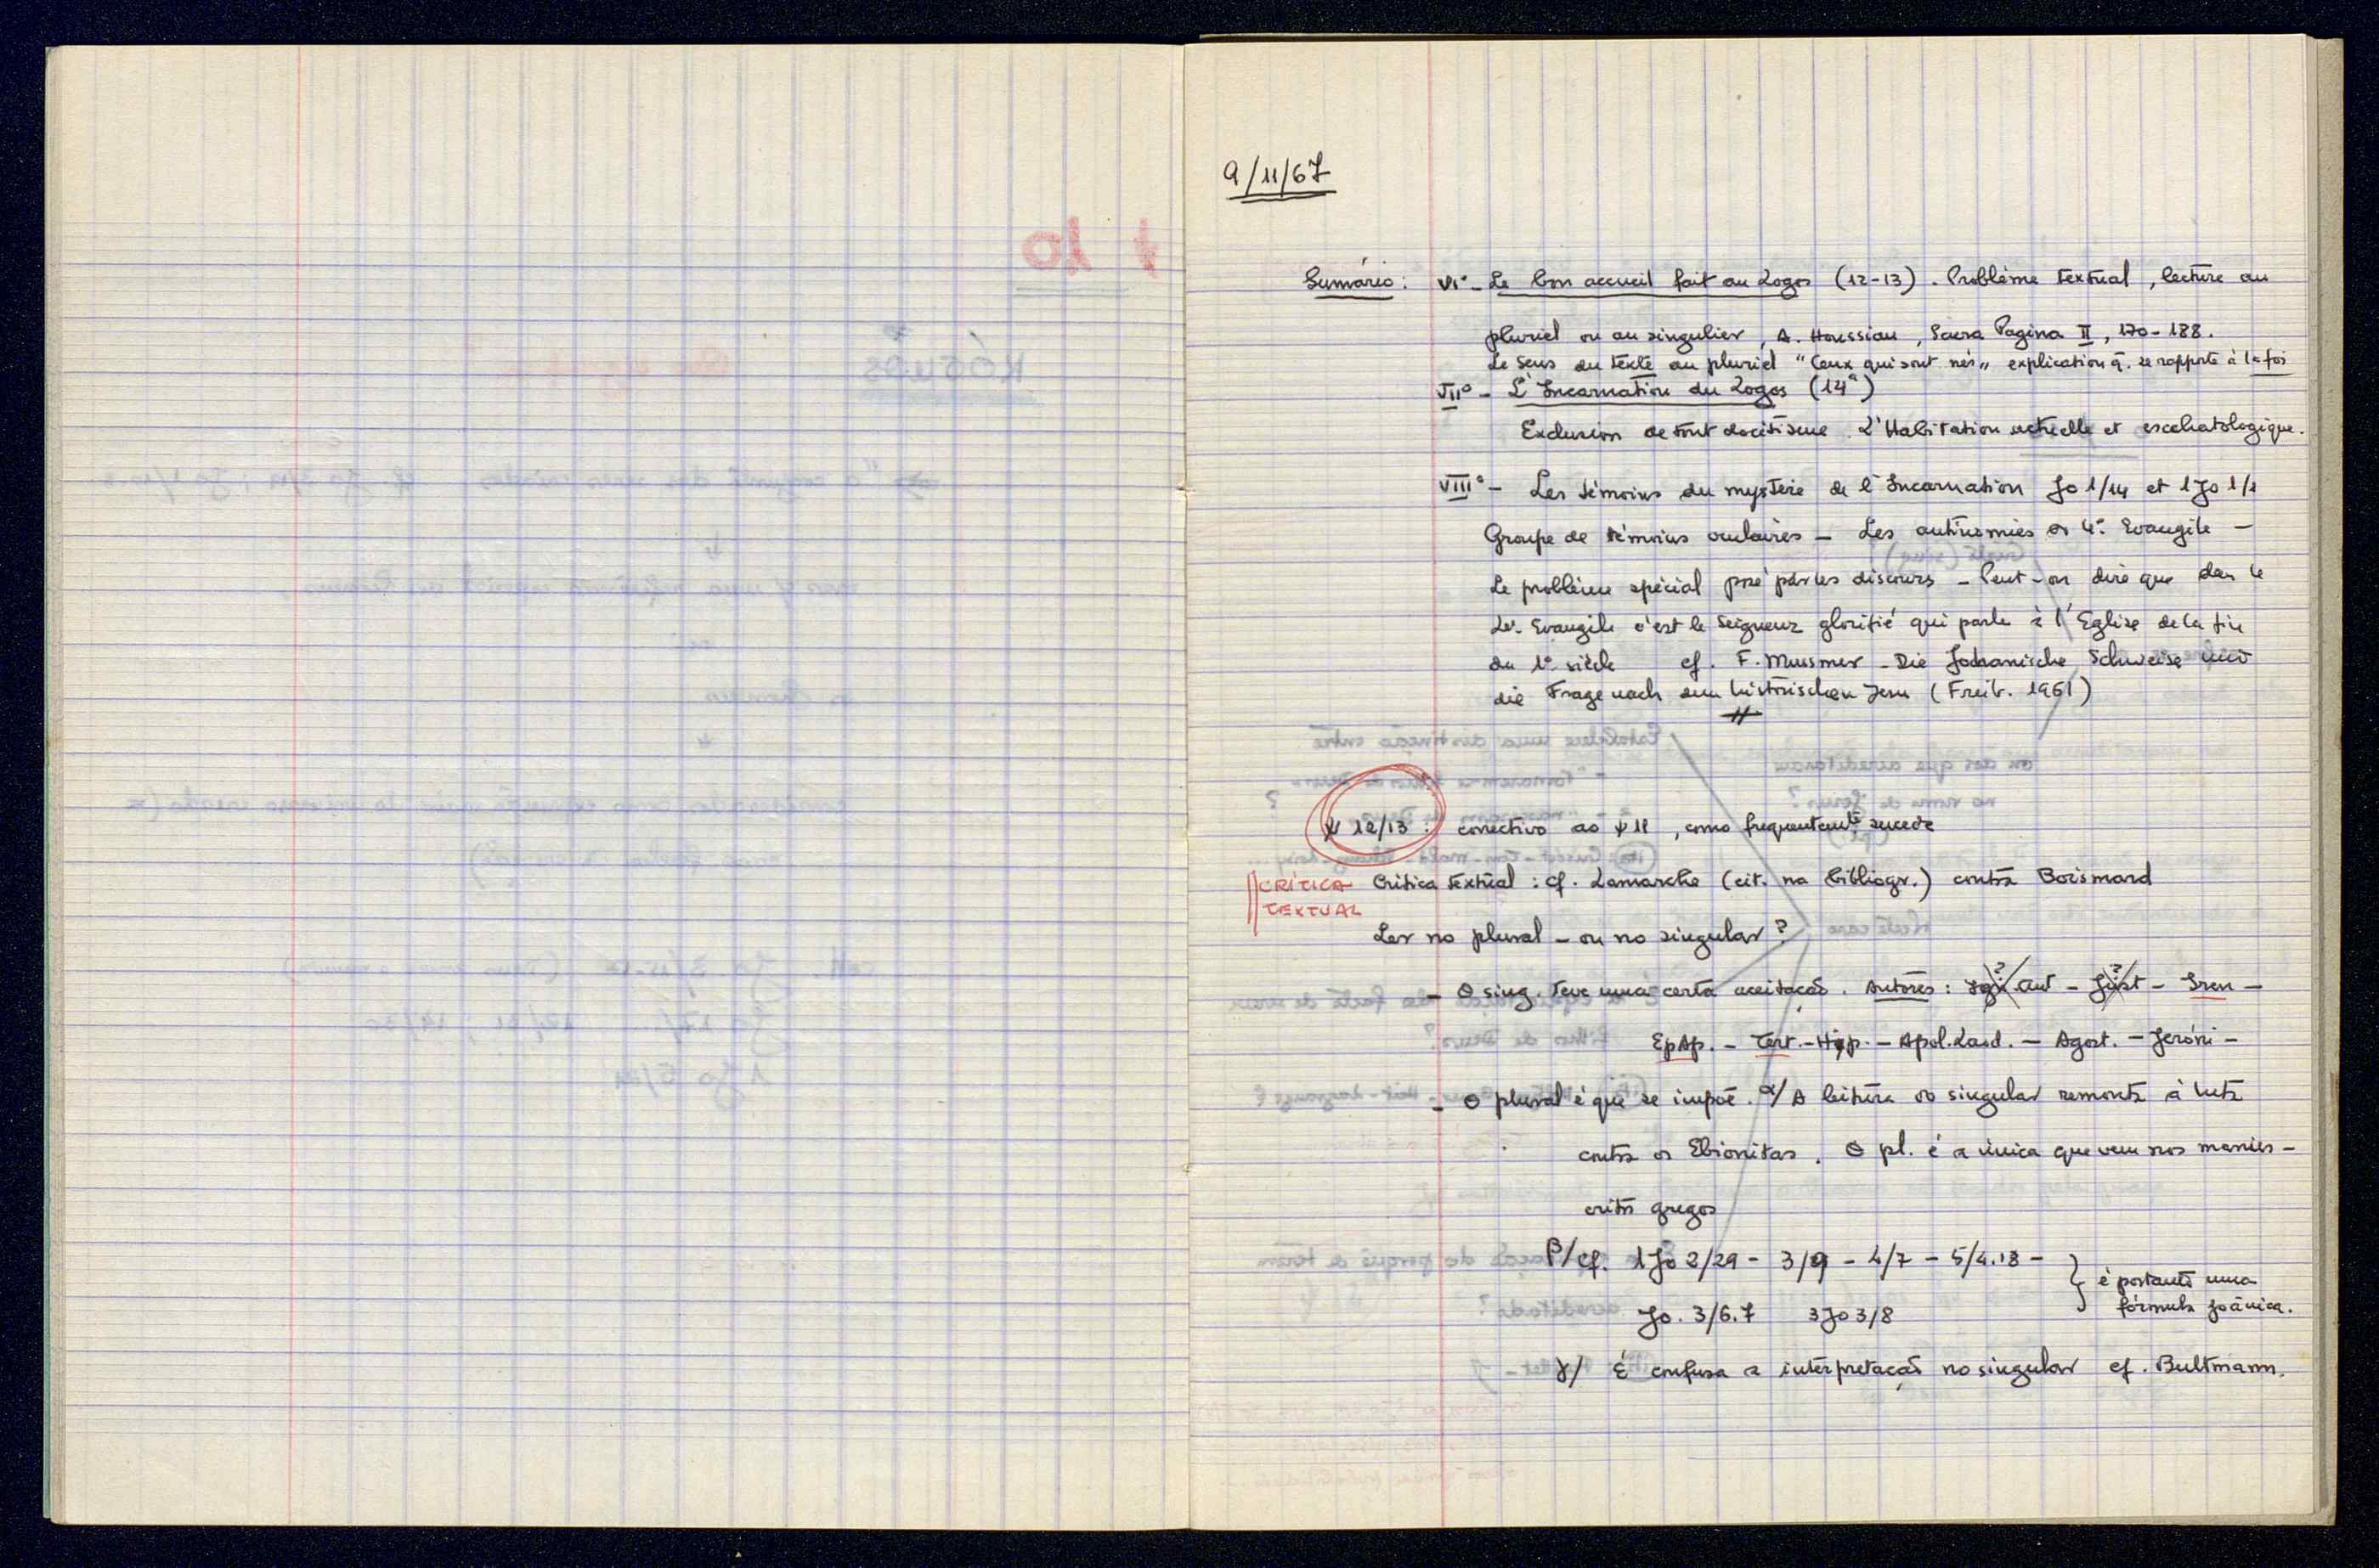 9/11/67
Sumário: VIº - Le bon accueil fait au Logos (12-13). Problème textual, lecture au
pluriel ou au singulier, A. Houssiau, Sacra Pagina II, 170-188.
Le sens du texte au pluriel "Ceux qui sont nés" explication q. se rapporte à la foi
VIIº - L'Incarnation du Logos (14ª)
Exclusion de tout docétisme. L'Habitation actuelle et eschatologique.
VIIIº - Les témoins du mystère de l'Incarnation Jo 1/14 et 1Jo 1/1
Groupe de témoins oculaires - Les du 4º. Evangile -
Le problème spécial posé par les discours - Peut-on dire que dan le
Evangile c'est le Seigneur glorifié qui parle à l'Eglise de la fin
du 1º siècle cf. F. Mussner - Die Johanische Sehweise und
die Frage nach dem historischen Jesu (Freib. 1961)
V 12/13: correctivo ao V 11, como frequentemte sucede
CRÍTICA Crítica textual: cf. Lamarche (cit. na bibliogr.) contra Boismard
TEXTUAL
Ler no plural - ou no singular?
- O sing. teve uma certa aceitação. Autores: Ign. Ant - Just - Iren -
EpAp. - Tert. - Hip. - Apol. Laod. - Agost. - Jeróni -
- O plural é que se impõe. α/ A leitura do singular remonta à luta
contra os Ebionitas. O pl. é a única que vem nos manus-
critos gregos
β/ cf. 1Jo 2/29 - 3/9 - 4/7 - 5/4.18 -
Jo. 3/6.7 3Jo 3/8
} é portanto uma
fórmula joânica.
γ/ É confusa a interpretação no singular cf. Bultmann.